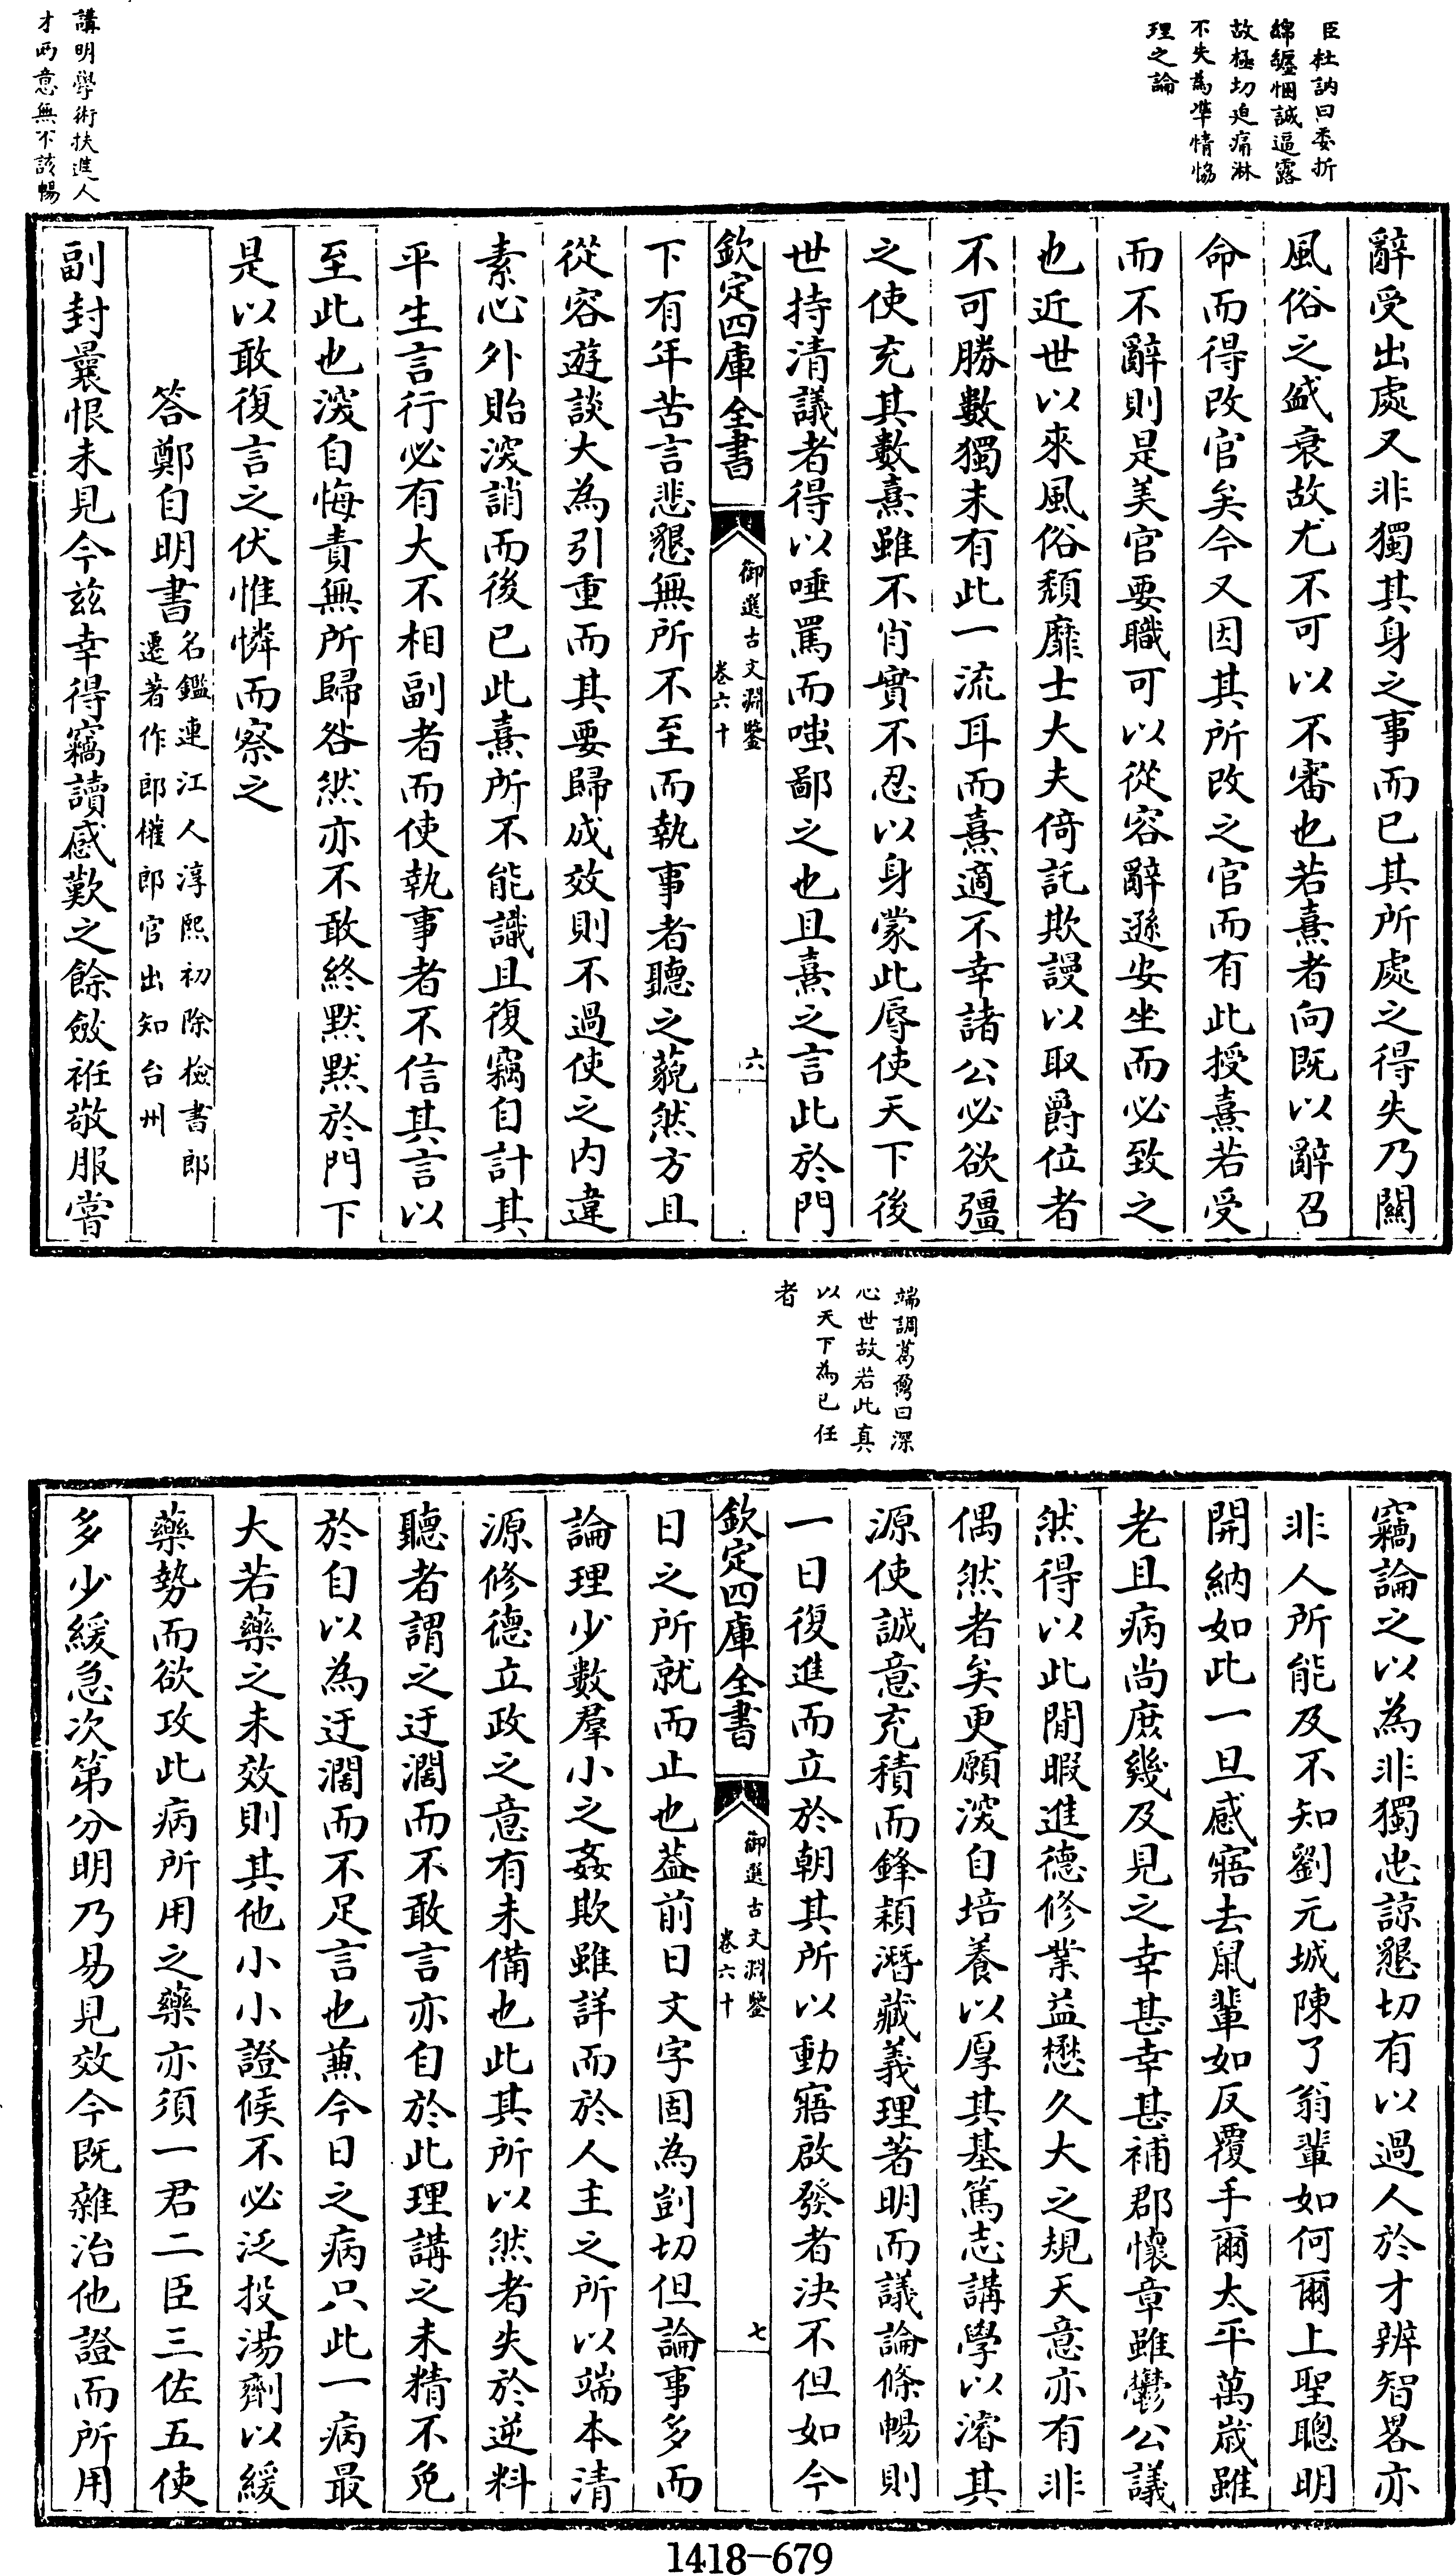 臣杜訥曰委折
綿纏悃誠逼露
故極切迫痛淋
不失為準情恊
理之論
辭受出處又非獨其身之事而已其所處之得失乃關
風俗之盛衰故尤不可以不審也若熹者向既以辭召
命而得改官矣今又因其所改之官而有此授熹若受
而不辭則是美官要職可以從容辭遜安坐而必致之
也近世以來風俗頹靡士大夫倚託欺謾以取爵位者
不可勝數獨未有此一流耳而熹適不幸諸公必欲彊
之使充其數熹雖不肖實不忍以身蒙此辱使天下後
世持清議者得以唾罵而嗤鄙之也且熹之言此於門
欽定四庫全書
御選古文淵鑒
卷六十
六
下有年苦言悲懇無所不至而執事者聽之藐然方且
從容遊談大為引重而其要歸成效則不過使之内違
素心外貽深誚而後已此熹所不能識且復竊自計其
平生言行必有大不相副者而使執事者不信其言以
至此也深自悔責無所歸咎然亦不敢終默默於門下
是以敢復言之伏惟憐而察之
答鄭自明書
名鑑連江人淳熙初除檢書郎
遷著作郎權郎官出知台州
講明學術扶進人
才兩意無不該暢
副封曩恨未見今兹幸得竊讀感歎之餘斂袵敬服嘗
端調葛鼐曰深
心世故若此真
以天下為已任
者
竊論之以為非獨忠諒懇切有以過人於才辨智畧亦
非人所能及不知劉元城陳了翁輩如何爾上聖聰明
開納如此一旦感寤去鼠輩如反覆手爾太平萬歲雖
老且病尚庶幾及見之幸甚幸甚補郡懷章雖鬱公議
然得以此閒暇進德修業益懋久大之規天意亦有非
偶然者矣更願深自培養以厚其基篤志講學以濬其
源使誠意充積而鋒穎潛藏義理著明而議論條暢則
一日復進而立於朝其所以動寤啟發者決不但如今
欽定四庫全書
御選古文淵鑒
卷六十
七
日之所就而止也葢前日文字固為剴切但論事多而
論理少數羣小之姦欺雖詳而於人主之所以端本清
源修德立政之意有未備也此其所以然者失於逆料
聽者謂之迂濶而不敢言亦自於此理講之未精不免
於自以為迂濶而不足言也蕪今日之病只此一病最
大若藥之未效則其他小小證候不必泛投湯劑以緩
藥勢而欲攻此病所用之藥亦須一君二臣三佐五使
多少緩急次第分明乃易見效今既雜治他證而所用
1418-679